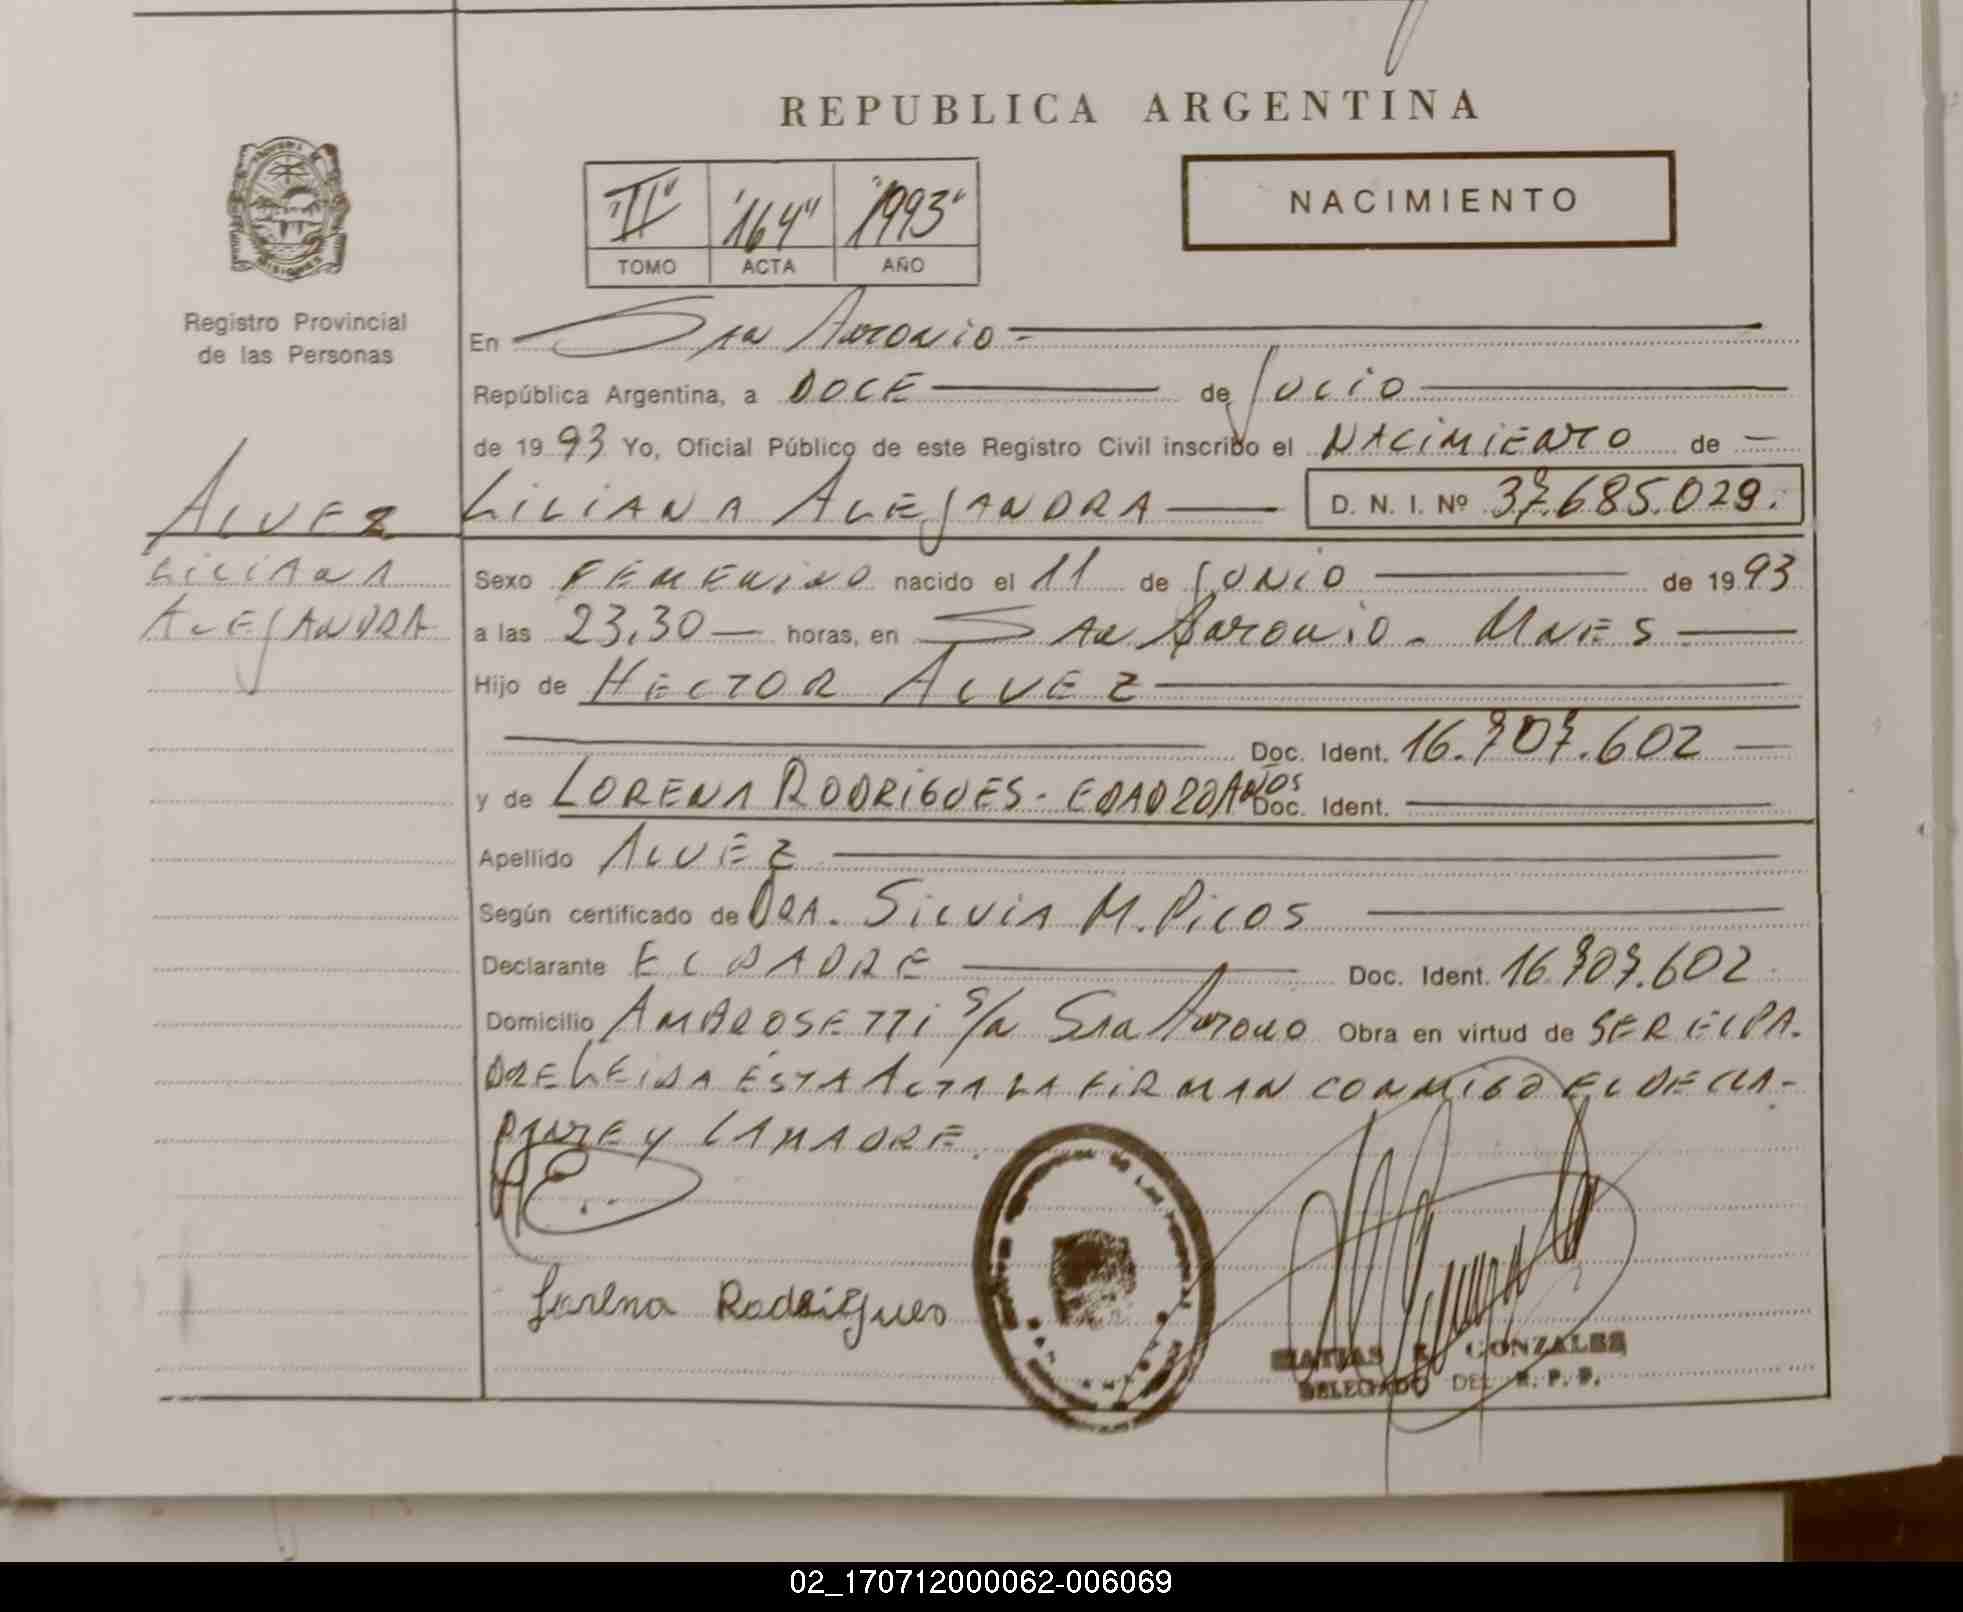 REPUBLICA ARGENTINA
"II" "164" "1993"
TOMO ACTA AÑO
NACIMIENTO
MISIONES
Registro Provincial
de las Personas
En San Antonio
República Argentina, a DOCE de Julio
de 1993 Yo, Oficial Público de este Registro Civil inscribo el NACIMIENTO de
ALVEZ
LILIANA
ALEJANDRA
LILIANA ALEJANDRA D. N. I. Nº 37.685.029.
Sexo FEMENINO nacido el 11 de JUNIO de 1993
a las 23,30 horas, en San Antonio - MNES
Hijo de HECTOR ALVEZ
Doc. Ident. 16.707.602
y de LORENA RODRIGUES - EDAD 20 AÑOS Doc. Ident.
Apellido ALVEZ
Según certificado de DRA. SILVIA M. PICOS
Declarante EL PADRE Doc. Ident. 16.707.602
Domicilio AMBROSETTI S/N San Antonio Obra en virtud de SER EL PA-
DRE LEIDA ESTA ACTA LA FIRMAN CONMIGO EL DECLA-
RANTE Y LA MADRE.
Lorena Rodrigues
MATIAS GONZALEZ
DELEGADO DEL R. P. P.
02_170712000062-006069